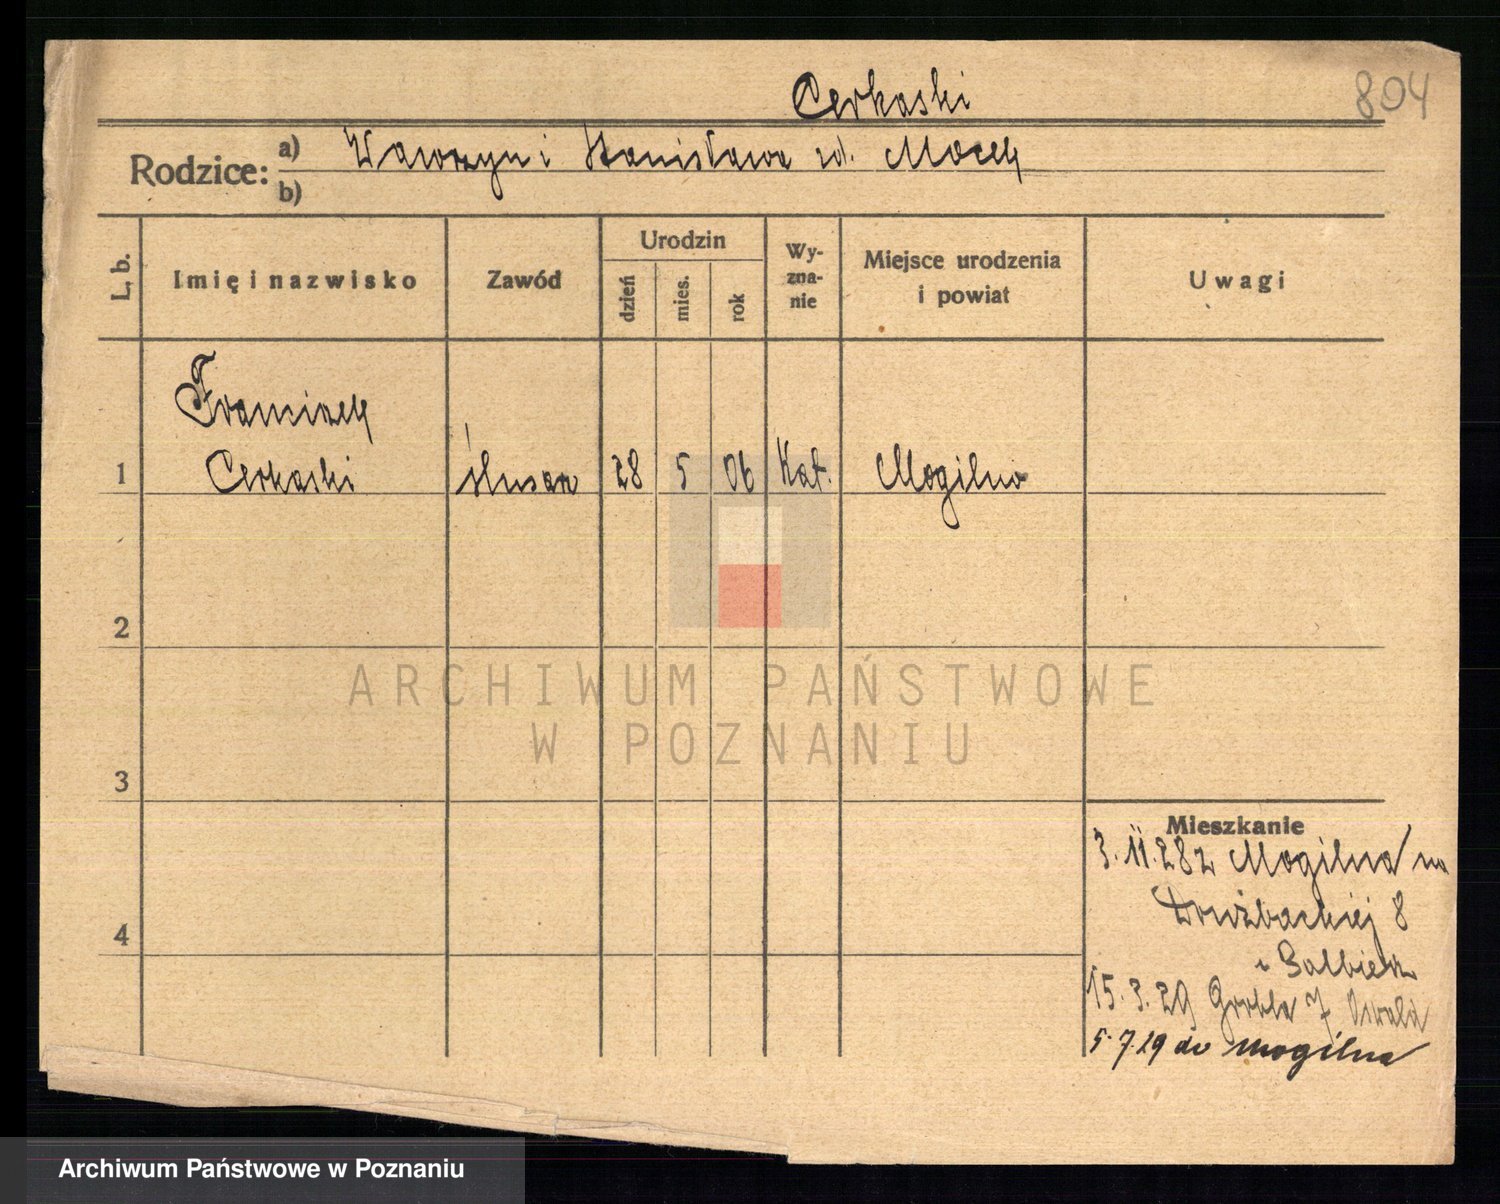 Cerkaski
804
Rodzice: a) Wawrzyn i Stanisława zd. Macek
b)
L. b.
Imię i nazwisko
Zawód
Urodzin
dzień
mies.
rok
Wy-
zna-
nie
Miejsce urodzenia
i powiat
Uwagi
Franciszek
1 Cerkaski ślusarz 28 5 06 Kat. Mogilno
2
3
4
Mieszkanie
3.11.28 z Mogilna na
Drużbackiej 8
15.3.29 Grobla 7 Oswald
5.7.29 do Mogilna
ARCHIWUM PAŃSTWOWE
W POZNANIU
Archiwum Państwowe w Poznaniu